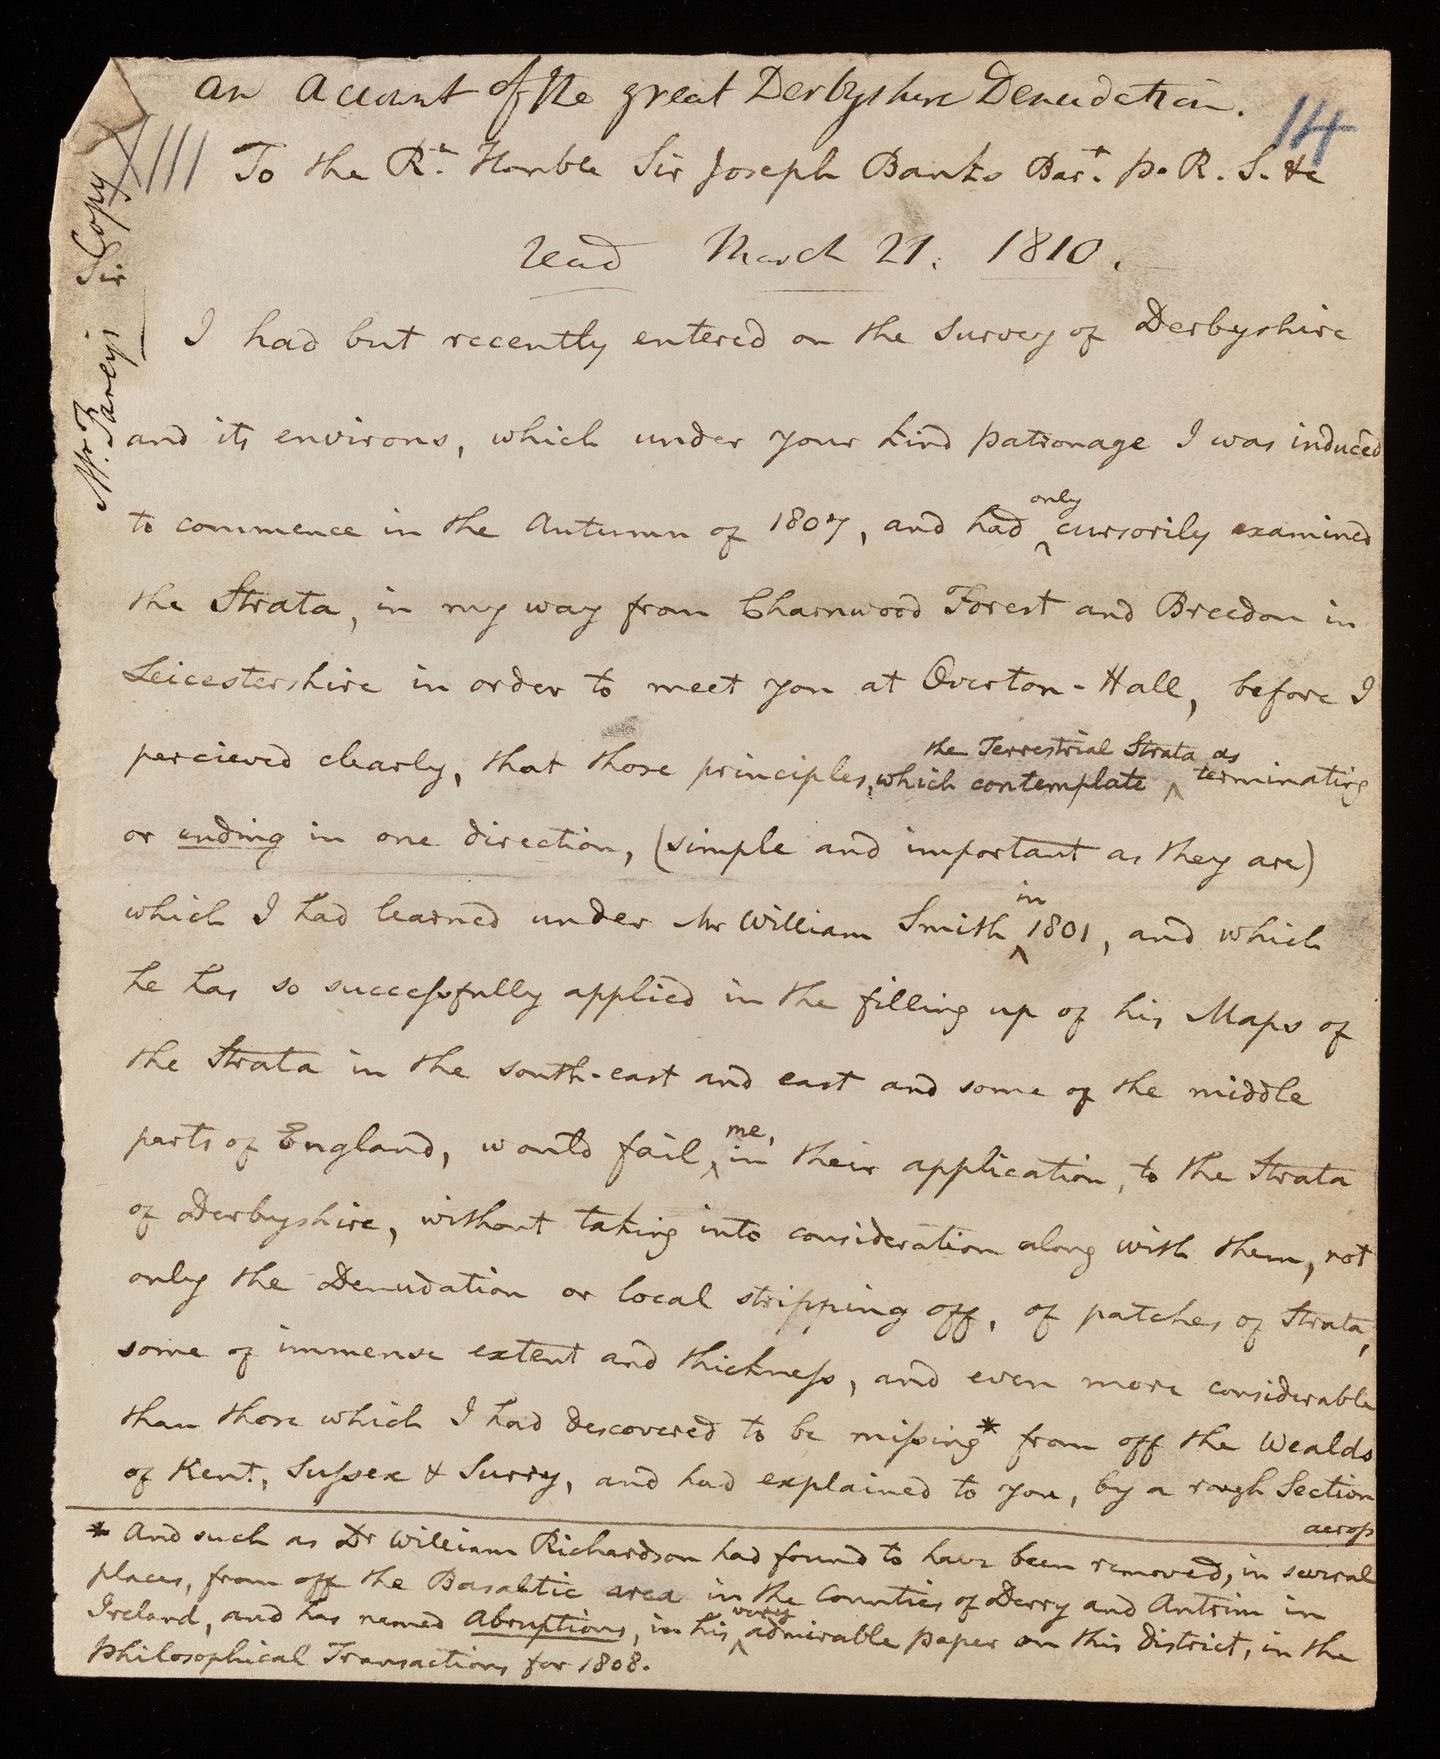 an Account of the great Derbyshire Denudation.
14
XIII
To the Rt. Honble Sir Joseph Banks Bart. P. R. S. &c
read March 21. 1810.
Mr. J. Farey's Sr. Copy
I had but recently entered on the Survey of Derbyshire
and its environs, which under your kind patronage I was induced
to commence in the Autumn of 1807, and had ^only cursorily examined
the Strata, in my way from Charnwood Forest and Breedon in
Leicestershire in order to meet you at Overton-Hall, before I
percieved clearly, that those principles, which contemplate ^the Terrestrial Strata as terminating
or ending in one direction, (simple and important as they are)
which I had learned under Mr William Smith ^in 1801, and which
he has so successfully applied in the filling up of his Maps of
the Strata in the south-east and east and some of the middle
parts of England, would fail ^me, in their application, to the Strata
of Derbyshire, without taking into consideration along with them, not
only the Denudation or local stripping off, of patches of Strata,
some of immense extent and thickness, and even more considerable
than those which I had descovered to be missing* from off the Wealds
of Kent, Sussex & Surry, and had explained to you, by a rough Section
across
* And such as Dr William Richardson had found to have been removed, in several
places, from off the Basaltic area in the Counties of Derry and Antrim in
Ireland, and has named Abruptions, in his ^very admirable paper on this district, in the
Philosophical Transactions for 1808.